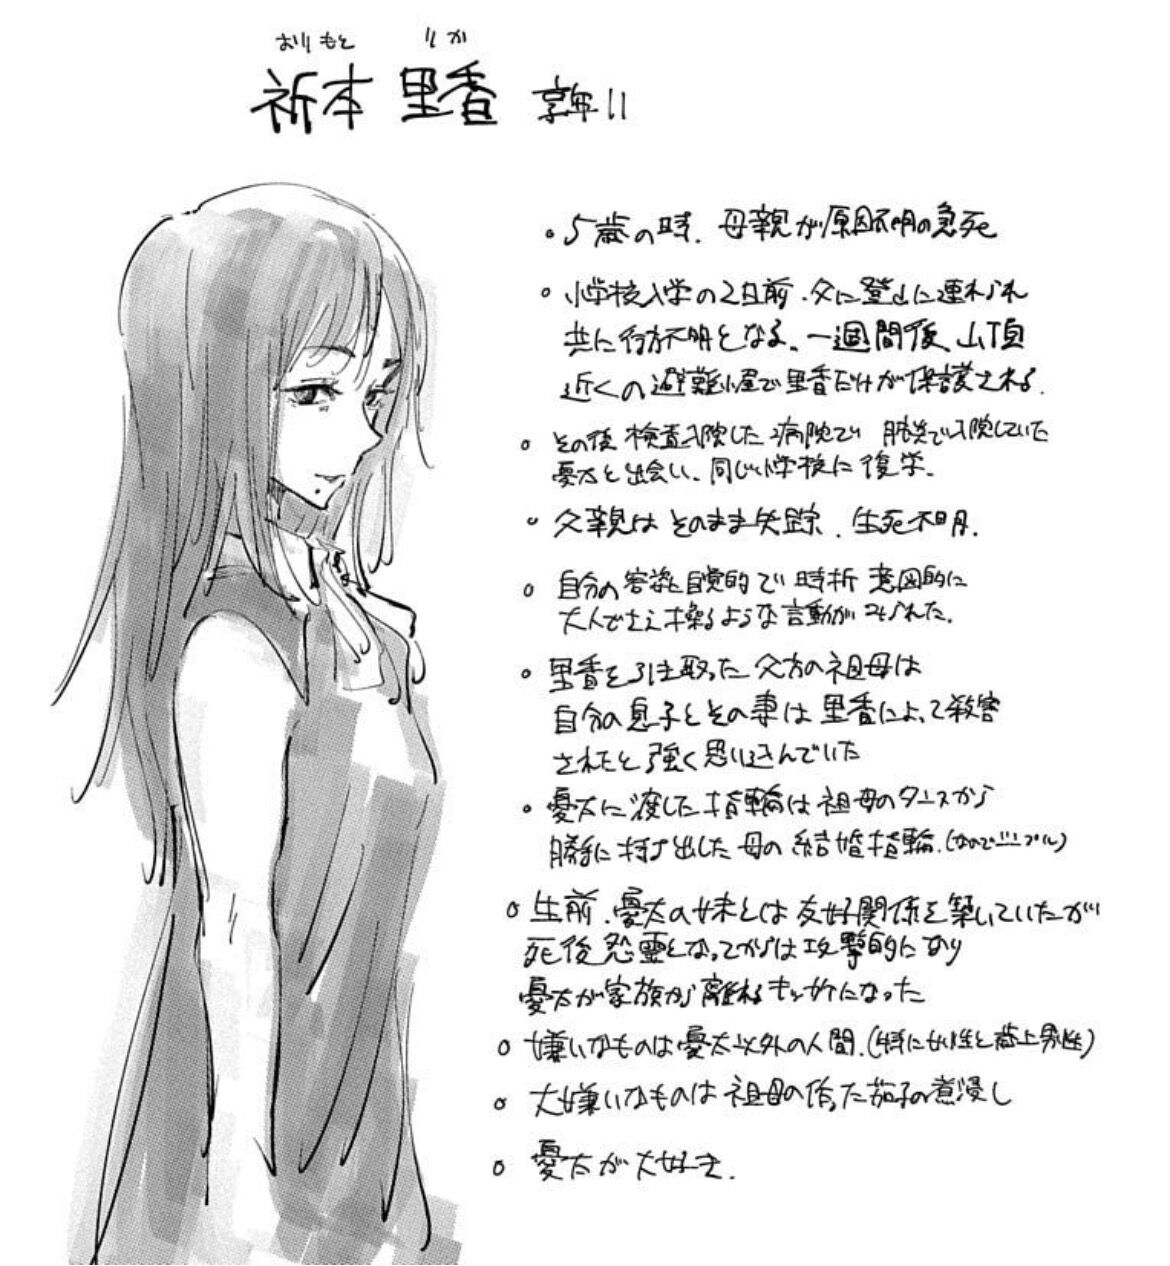 おりもと りか
祈本 里香 享年11
・5歳の時、母親が原因不明の急死
・小学校入学の2日前、父に登山に連れられ
共に行方不明となる、一週間後、山頂
近くの避難小屋で里香だけが保護される.
・その後検査入院した病院で 肺炎で入院していた
憂太と出会い、同じ小学校に復学.
・父親はそのまま失踪、生死不明.
・自分の容姿に自覚的で時折 意図的に
大人でさえ操るような言動がみられた.
・里香を引き取った父方の祖母は
自分の息子とその妻は里香によって殺害
されたと強く思い込んでいた
・憂太に渡した指輪は祖母のタンスから
勝手に持ち出した母の結婚指輪.(なのでシンプル)
・生前、憂太の妹とは友好関係を築いていたが
死後怨霊となってからは攻撃的になり
憂太が家族から離れるキッカケになった
・嫌いなものは憂太以外の人間.(特に女性と歳上男性)
・大嫌いなものは祖母の作った茄子の煮浸し
・憂太が大好き.